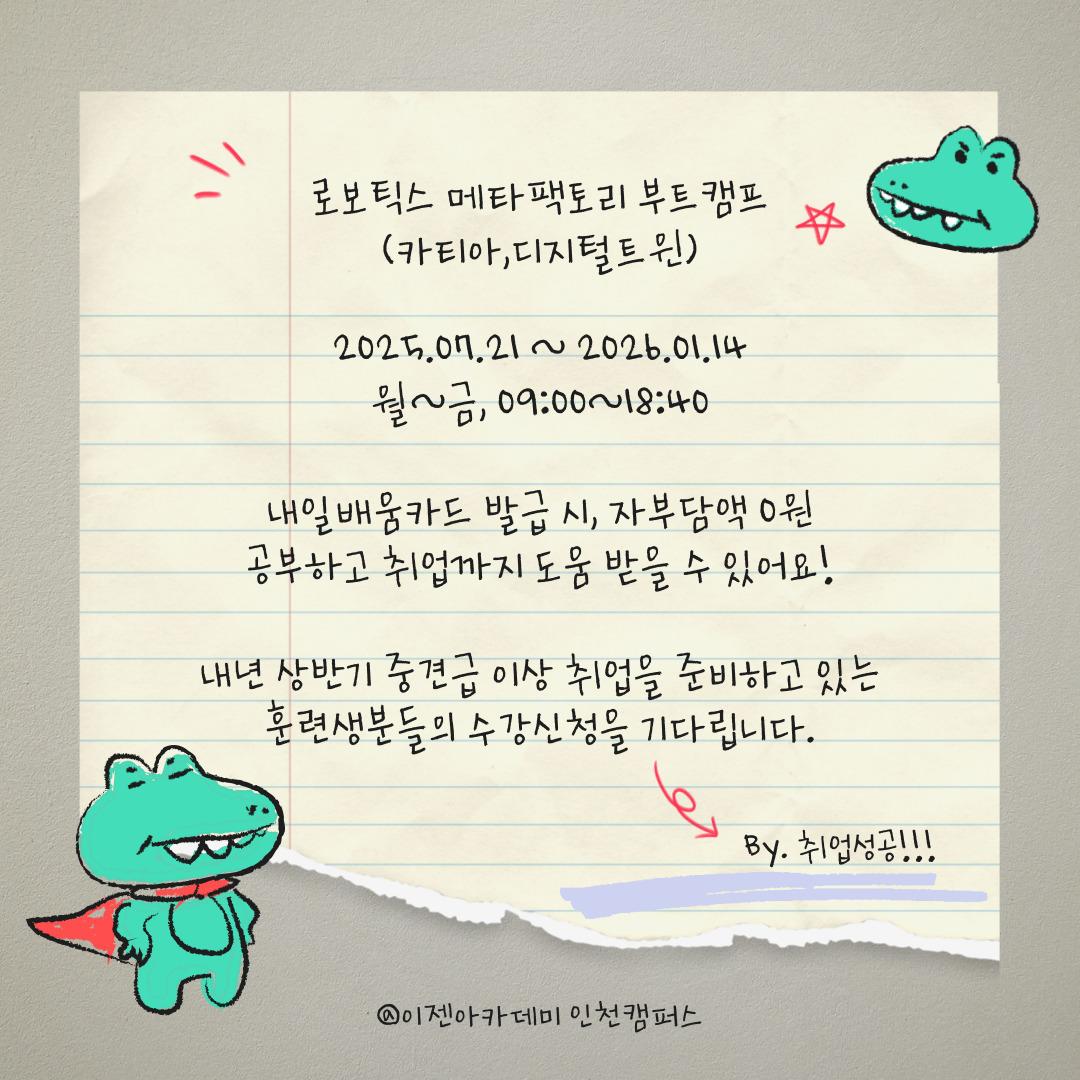 로보틱스 메타팩토리 부트캠프
(카티아,디지털트윈)
2025.07.21 ~ 2026.01.14
월~금, 09:00~18:40
내일배움카드 발급 시, 자부담액 0원
공부하고 취업까지 도움 받을 수 있어요!
내년 상반기 중견급 이상 취업을 준비하고 있는
훈련생분들의 수강신청을 기다립니다.
By. 취업성공!!!
@이젠아카데미 인천캠퍼스